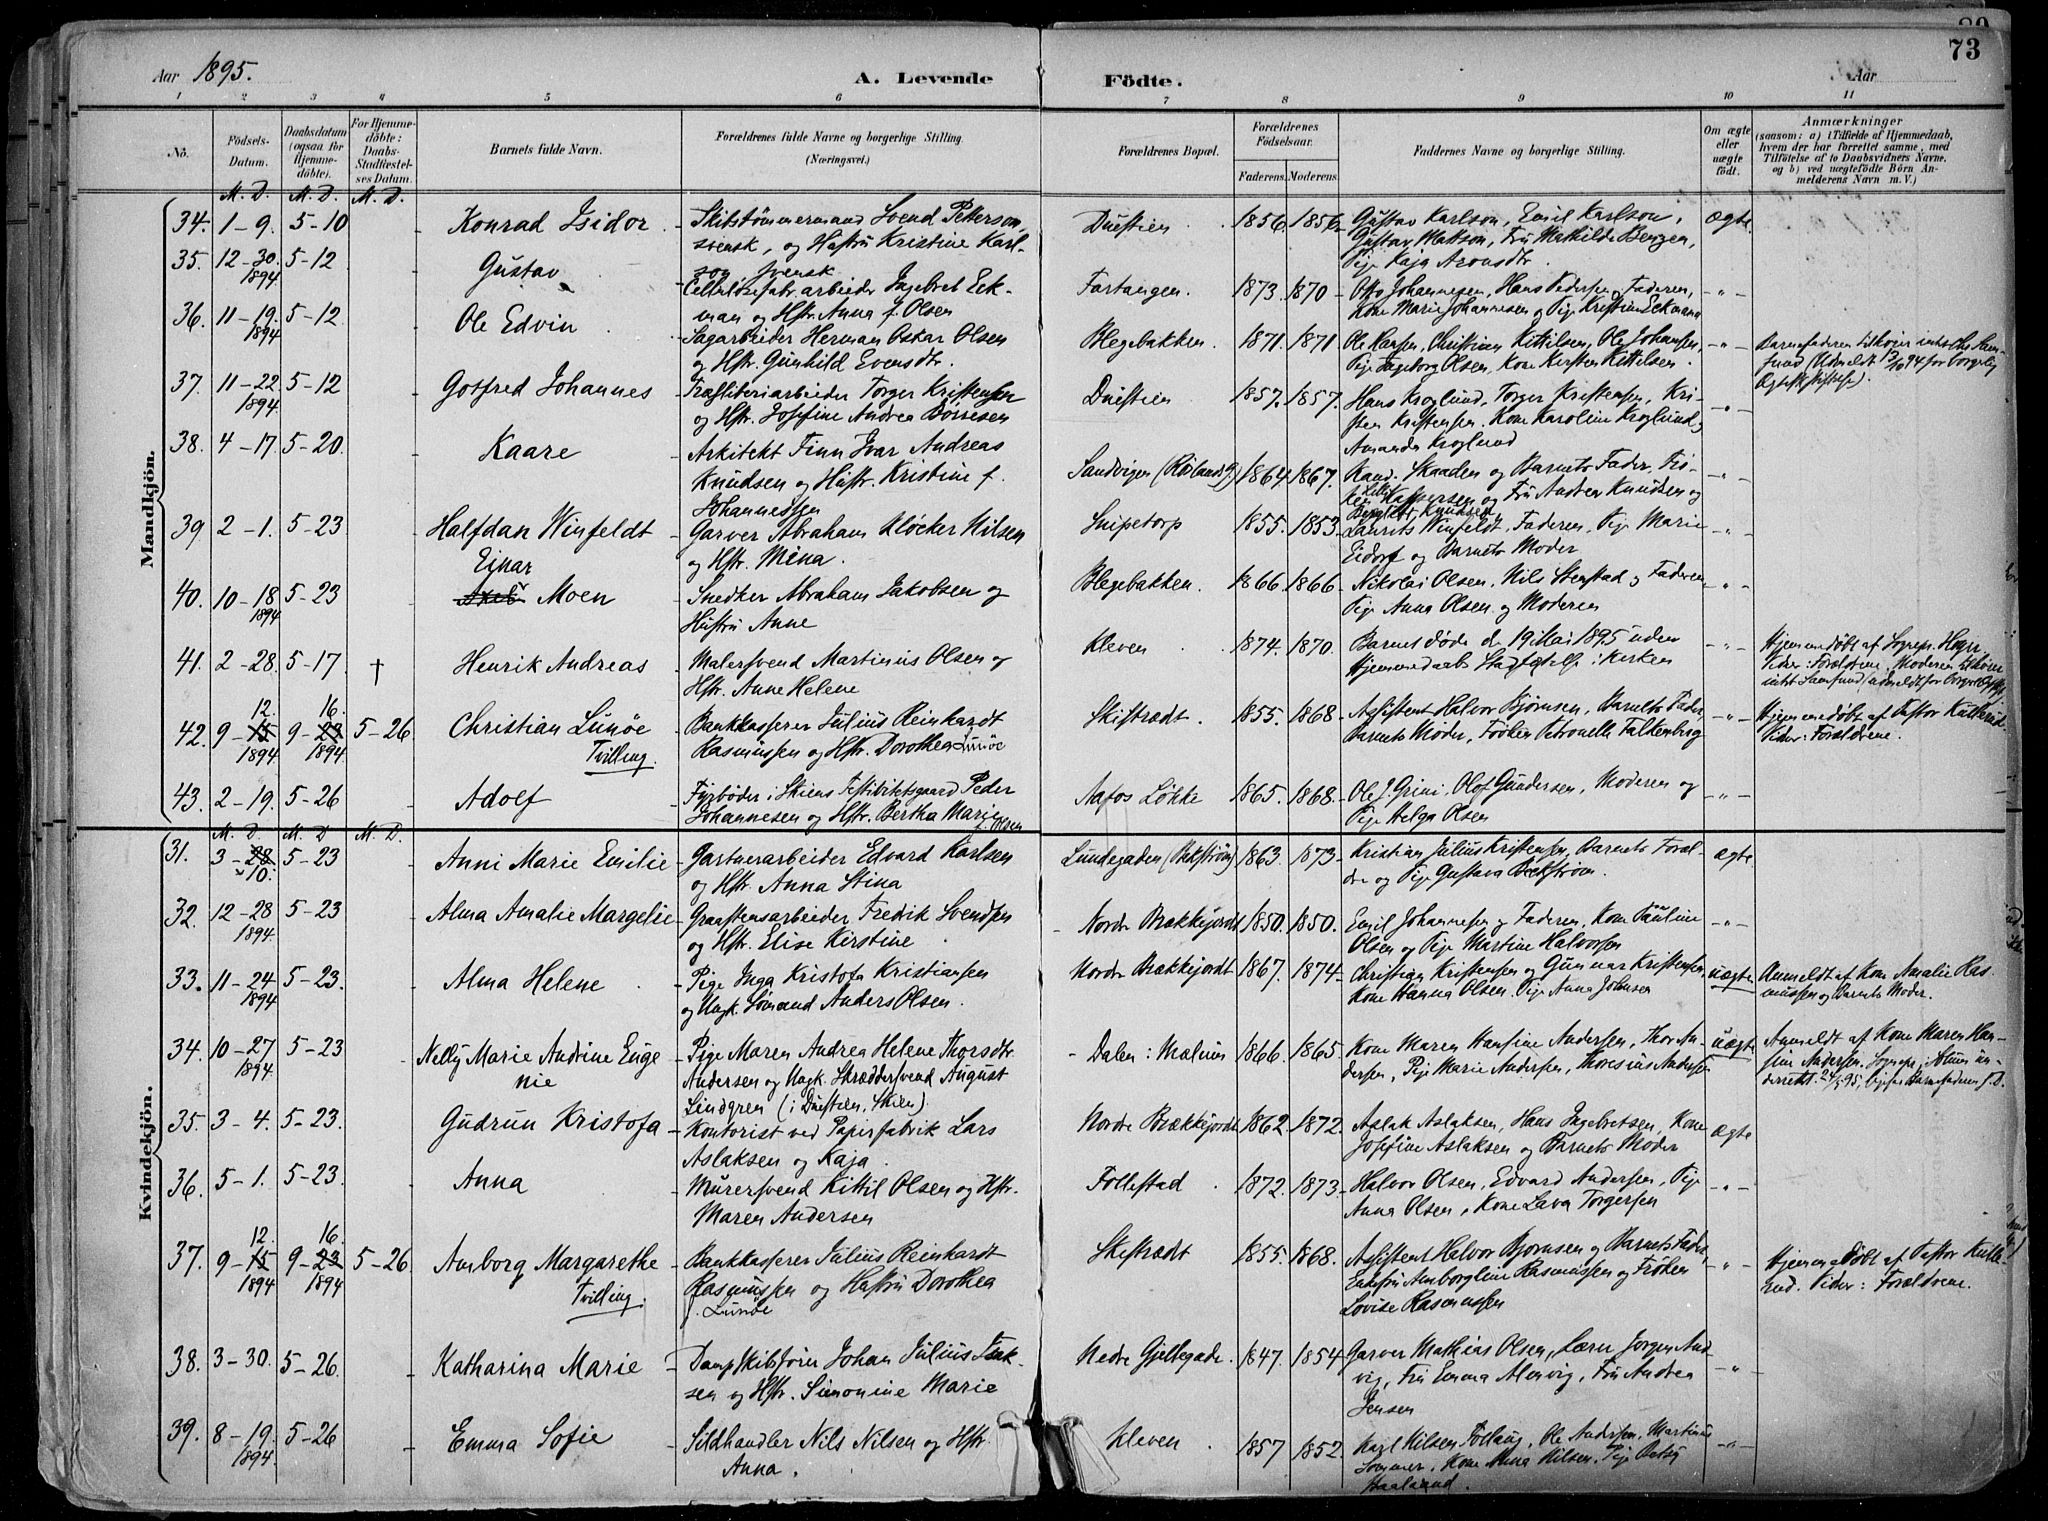 80
73
Aar 1895.
A. Levende Födte.
Aar
1 2 3 4 5 6 7 8 9 10 11
No.
Födsels-Datum.
Daabsdatum (ogsaa for Hjemme-döbte).
For Hjemme-döbte: Daabs-Stadfæstel-ses Datum.
Barnets fulde Navn.
Forældrenes fulde Navne og borgerlige Stilling. (Næringsvei.)
Forældrenes Bopæl.
Forældrenes Födselsaar.
Faderens. Moderens.
Faddernes Navne og borgerlige Stilling.
Om ægte eller uægte födt.
Anmærkninger
(saasom: a) i Tilfælde af Hjemmedaab, hvem der har forrettet samme, med Tilföielse af to Daabsvidners Navne, og b) ved uægtefödte Börn An-melderens Navn m. V.)
M. D. M. D. M. D.
Mandkjön.
34. 1-9. 5-10 - Konrad Isidor - Skibstømmermand Svend Petterson, svensk, og Hustru Kristine Karlson svensk
Duestien 1856. 1856. Gustav Karlson, Emil Karlson, Gustav Mattson, Fru Mathilde Bengen, Pige Kaja Aronsdtr. ægte
35. 12-30. 1894 5-12 - Gustav - Cellulosefabr.arbeider Ingebret Eckman og Hstr. Anna f. Olsen
Fartangen. 1873. 1870 - Otto Johannesen, Hans Pedersen, Faderen, Kone Marie Johannesen og Pige Kristine Eckmann - " -
36. 11-19. 1894 5-12 - Ole Edvin - Sagarbeider Herman Oskar Olsen og Hstr. Gunhild Evensdtr.
Blegebakken. 1871. 1871 Ole Hansen, Christian Kittilsen, Ole Johansen, Pige Ingeborg Olsen, Kone Kirsten Kittilsen. - " - Barnefaderen tilhører intet Sam-fund (Udmeldt 13/10 94 for borgerlig Ægteskabsstiftelse).
37. 11-22 1894. 5-12 - Gotfred Johannes - Træsliberiarbeider Torger Kristensen og Hstr. Josefine Andrea Børresen
Duestien 1857. 1857. Hans Kroglund, Torger Kristensen, Kristen Kristensen. Kone Karoline Kroglund, Amanda Kroglund - " -
38. 4-17. 5-20 - Kaare - Arkitekt Finn Ivar Andreas Knudsen og Hustr. Kristine f. Johannessen
Sandvigen 1864 1867. Kand. Skaaden og Barnets Fader, Frøken Lilly Kaspersen og Fru Andrea Knudsen og Bergliot Knudsen - " -
39 2-1. 5-23 - Halfdan Winfeldt - Garver Abraham Kløcker Nilsen og Hstr. Mina.
Snipetorp 1855. 1853. Laurits Winfeldt, Faderen, Pige Marie Eidorf og Barnets Moder - " -
40. 10-18 1894 5-23 - Einar Moen - Snedker Abraham Jakobsen og Hustru Anne
Blegebakken. 1866. 1866 - Nikolai Olsen. Nils Stenstad og Faderen, Pige Anna Olsen og Moderen - " -
41. 2-28. 5-17 † Henrik Andreas - Malersvend Martinus Olsen og Hstr. Anne Helene
Kleven 1874. 1870. Barnet døde d. 19 Mai 1895 uden Hjemmedaabs Stadfæstelse i Kirken - " - Hjemmedøbt af Sognepr. Vider: Forældrene. Moderen tilhører intet Samfund
42. 9-12. 15 1894 9-16. 23 1894 5-26 Christian Lunøe Tvilling. - Bankkasserer Julius Reinhardt Rasmussen og Hstr. Dorothea Lunøe
Skistrædt. 1855. 1868 - Assistent Halvor Bjørnsen, Barnets Fader, Barnets Moder, Frøken Petronelle Falkenberg - " - Hjemmedøbt af Pastor Kullerud. Vider: Forældrene.
43. 2-19. 5-26 - Adolf - Fyrbøder i Skiens Festivitetsgaard Peder Johannesen og Hstr. Bertha Marie f. Olsen
Aafos Løkke 1865. 1868. Ole J. Grini. Olof Gundersen, Moderen og Pige Helga Olsen - " -
M. D. M. D. M. D.
Kvindekjön.
31. 3-28 10. 5-23 - Anni Marie Emilie - Gartnerarbeider Edvard Karlsen og Hstr. Anna Stina
Lundegaden (Bekstrøm) 1863. 1873. Kristian Julius Kristensen, Barnets Forældre og Pige Gustava Bekstrøm. ægte
32. 12-28 1894. 5-23 - Alma Amalie Margelie - Graastensarbeider Fredrik Svendsen og Hstr. Elise Kirstine
Nordr Brækkejordt 1850. 1850. Emil Johannesen, Faderen, Kone Pauline Olsen og Pige Martine Halvorsen - " -
33. 11-24 1894 5-23. - Alma Helene - Pige Inga Kristofa Kristiansen og Ungk. Sømand Anders Olsen.
Nordr Brækkejordt 1867. 1874 - Christian Kristensen og Gunnar Kristensen, Kone Hanna Olsen. Pige Anna Johnsen uægte Anmeldt af Kone Amalie Rasmussen og Barnets Moder.
34. 10-27 1894. 5-23 - Nelly Marie Andrine Eugenie - Pige Maren Andrea Helene Thorsdtr. Andersen og Ungk. Skræddersvend August Lindgren (i Duestien, Skien)
Dalen i Mælum 1866. 1865. Kone Maren Hansine Andersen, Thor Andersen, Pige Marie Andersen, Thoresius Andersen uægte Anmeldt af Kone Maren Hansine Andersen.
35. 3-4. 5-23. - Gudrun Kristofa - Kontorist ved Papirfabrik Lars Aslaksen og Kaja
Nordre Brækkejordt 1862. 1872. Aslak Aslaksen, Hans Ingebretsen, Kone Josefine Aslaksen og Barnets Moder ægte
36. 5-1. 5-23. - Anna - Murersvend Kittil Olsen og Hstr. Maren Andersen
Follestad 1872. 1873 - Halvor Olsen, Edvard Andersen, Pige Anna Olsen, Kone Lava Torgersen - " -
37. 9-12. 15 1894 9-16. 23 1894 5-26 Amborg Margarethe Tvilling. - Bankkasserer Julius Reinhardt Rasmussen og Hustru Dorothea f. Lunøe
Skistrædt 1855. 1868. Assistent Halvor Bjørnsen og Barnets Fader, Enkefru Amborgline Rasmussen og Frøken Lovise Rasmussen - " - Hjemmedøbt af Pastor Kullerud. Vider: Forældrene.
38. 3-30. 5-26. - Katharina Marie - Dampskibsfører Johan Julius Isaksen og Hstr. Simonine Marie
Nedre Gjellegade. 1847. 1854 Garver Mathias Olsen, Lærer Jørgen Andvig, Fru Emma Andvig, Fru Andrea Jensen - " -
39. 8-19. 1894. 5-26 - Emma Sofie - Sildhandler Nils Nilsen og Hstr. Anna.
Kleven 1857 1852. Karl Nilsen Follaug, Ole Andersen, Martinius Sommer, Kone Anna Nilsen, Pige Betsy Haaland. - " -